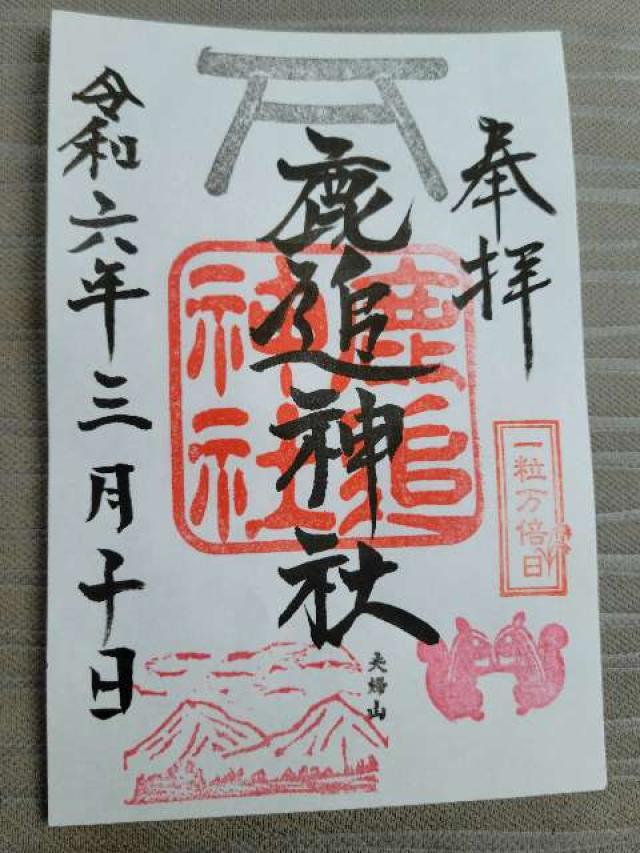 奉拝
鹿追神社
鹿追
神社
令和六年三月十日
一粒万倍日
夫婦山